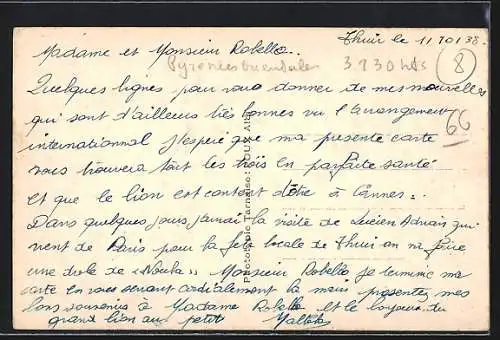 Thuir le 11/10/38
Madame et Monsieur Robello..
Pyrénées Orientales 3930 hts
8
Quelques lignes pour vous donner de mes nouvelles
qui sont d'ailleurs très bonnes vu l'arrangement
international J'espère que ma présente carte
66
vous trouvera tout les trois en parfaite santé
et que le lion est content d'être à Cannes.
Dans quelques jours j'aurai la visite de Lucien qui
vient de Paris pour la fête locale de Thuir on va faire
une drole de "Nouba" Monsieur Robello je termine ma
carte en vous serrant cordialement la main présentez mes
bons souvenirs à Madame Robello et le bonjour du
grand lion aux petits
Photographie Tarnaise : POUX Albi